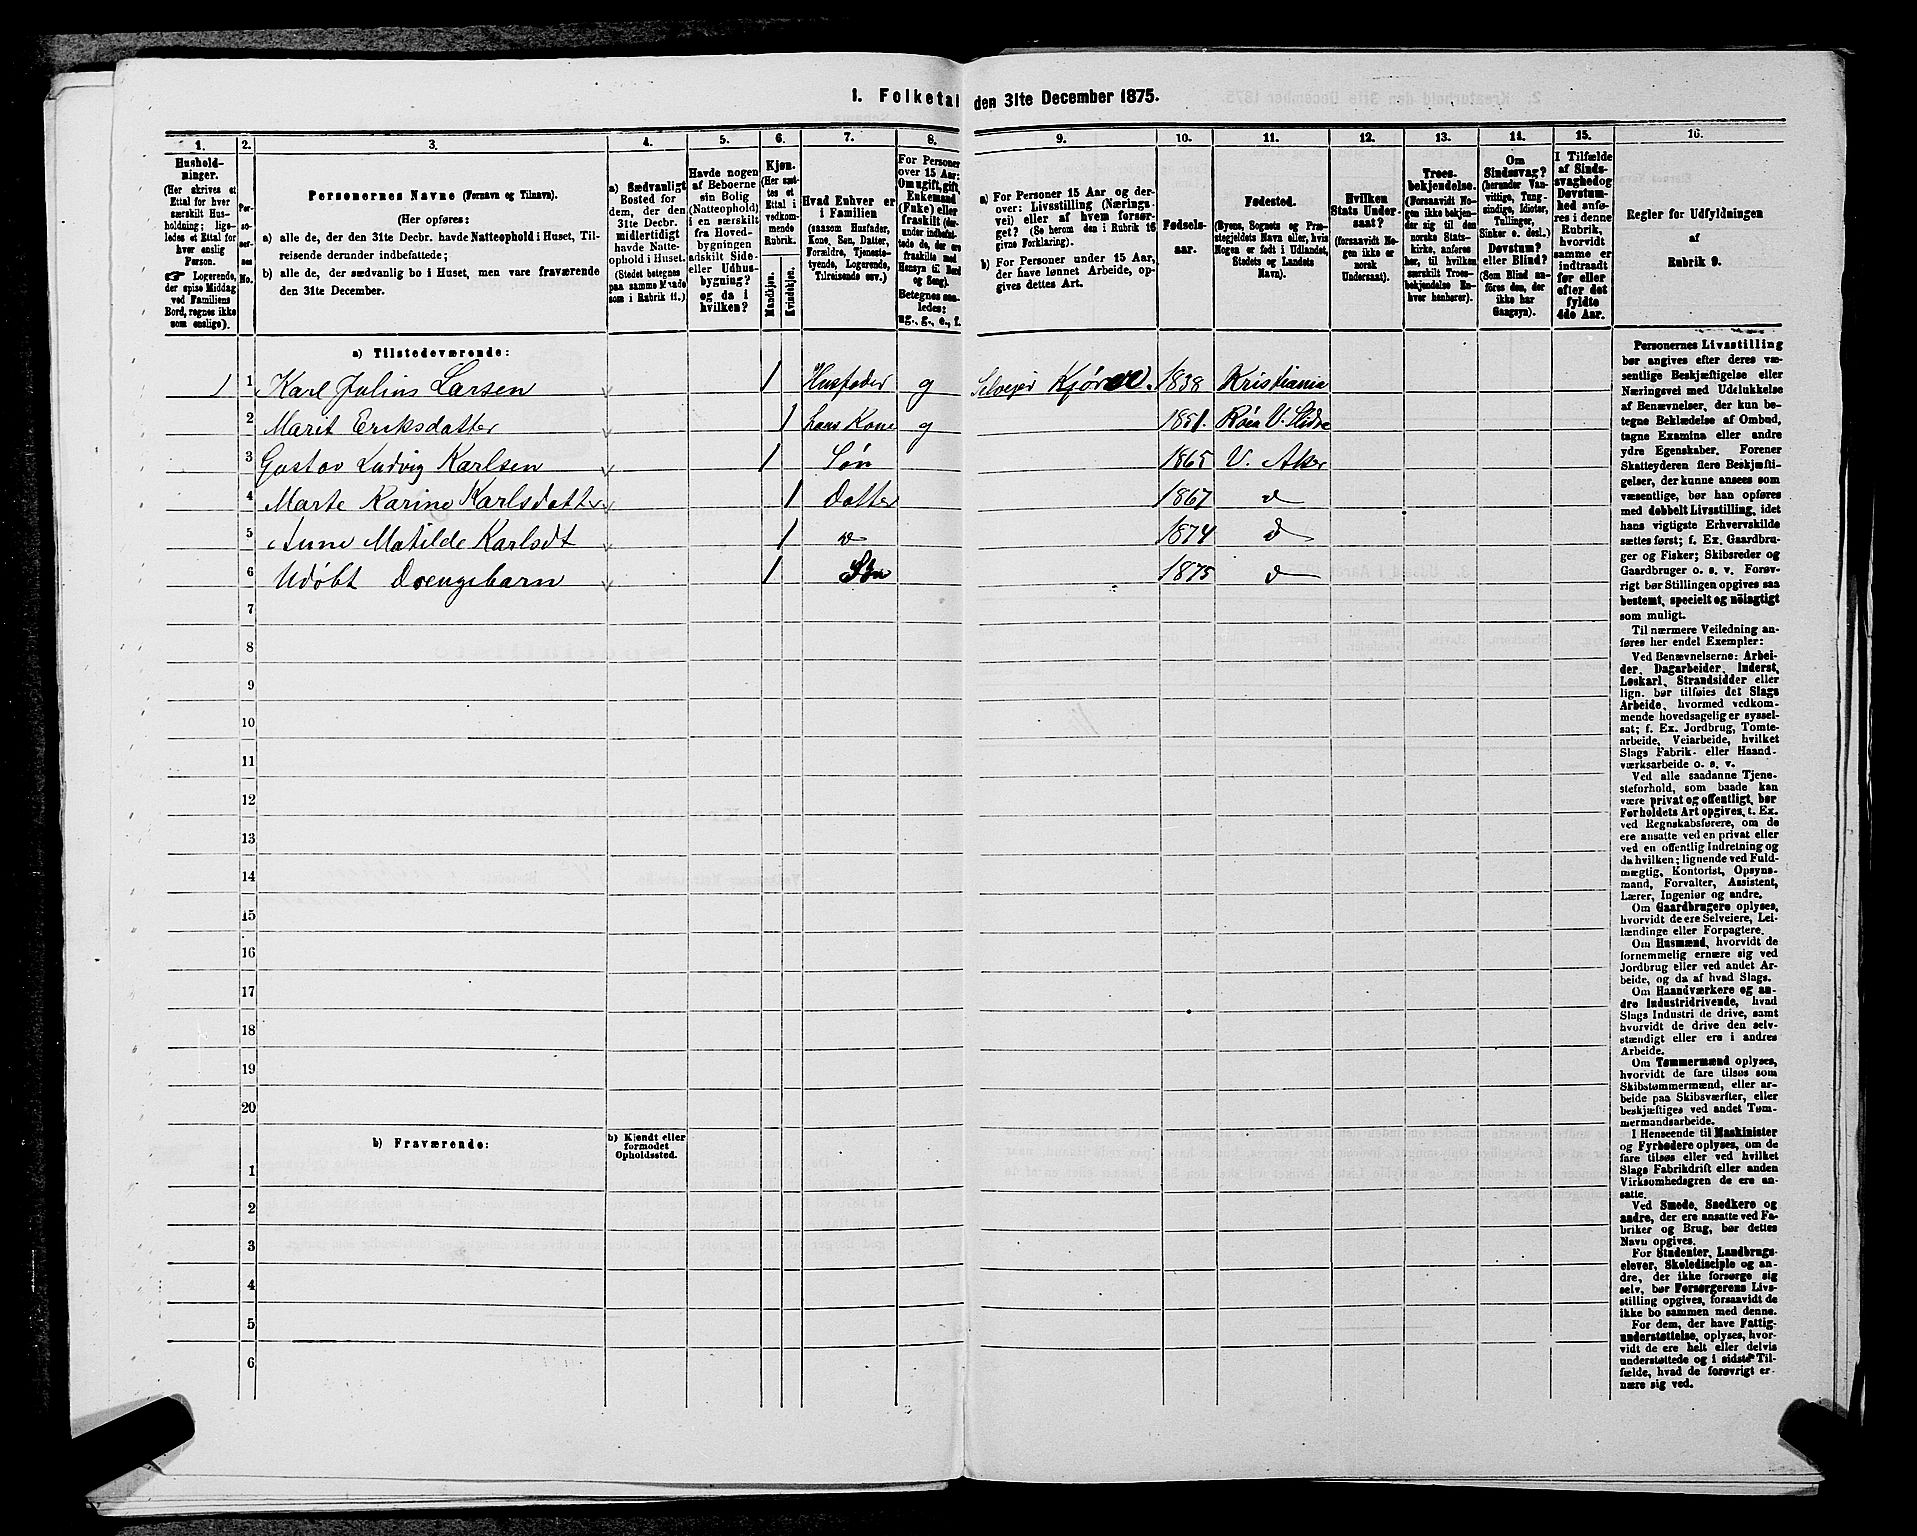 1. Folketal den 31te December 1875.
1. 2. 3. 4. 5. 6. 7. 8. 9. 10. 11. 12. 13. 14. 15. 16.
Hushold-
ninger.
(Her skrives et
Ettal for hver
særskilt Hus-
holdning; lige-
ledes et Ettal for
hver enslig
Person.
☞ Logerende,
der spise Middag
ved Familiens
Bord, regnes ikke
som enslige).
Per-
so-
ner-
nes
No.
Personernes Navne (Fornavn og Tilnavn).
(Her opføres:
a) alle de, der den 31te Decbr. havde Natteophold i Huset, Til-
reisende derunder indbefattede;
b) alle de, der sædvanlig bo i Huset, men vare fraværende
den 31te December.
a) Sædvanligt
Bosted for
dem, der den
31te Decbr.
midlertidigt
havde Natte-
ophold i Huset.
(Stedet betegnes
paa samme Maade
som i Rubrik 11.)
Havde nogen
af Beboerne
sin Bolig
(Natteophold)
i en særskilt
fra Hoved-
bygningen
adskilt Side-
eller Udhus-
bygning?
og da i
hvilken?
Kjøn.
(Her sæt-
tes et
Ettal i
vedkom-
mende
Rubrik.
Mandkjøn.
Kvindekjøn.
Hvad Enhver er
i Familien
(saasom Husfader,
Kone, Søn, Datter,
Forældre, Tjeneste-
tyende, Logerende,
Tilreisende osv.)
For Personer
over 15 Aar:
Om ugift, gift,
Enkemand
(Enke) eller
fraskilt (der-
under indbefat-
tede de, der ere
fraskilte med
Hensyn til Bord
og Seng).
Betegnes saa-
ledes:
ug., g., e., f.
a) For Personer 15 Aar og der-
over: Livsstilling (Nærings-
vei) eller af hvem forsør-
get? (Se herom den i Rubrik 16
givne Forklaring).
b) For Personer under 15 Aar,
der have lønnet Arbeide, op-
gives dettes Art.
Fødsels-
aar.
Fødested.
(Byens, Sognets og Præ-
stegjeldets Navn eller, hvis
Nogen er født i Udlandet,
Stedets og Landets
Navn.)
Hvilken
Stats Under-
saat?
(forsaavidt No-
gen ikke er
norsk
Undersaat).
Troes-
bekjendelse.
(Forsaavidt No-
gen ikke bekjen-
der sig til den
norske Stats-
kirke, anføres
her, til hvilken
særskilt Troes-
bekjendelse En-
hver henhører).
Om
Sindssvag?
(herunder Van-
vittige, Tung-
sindige, Idioter,
Tullinger,
Sinker o. desl.)
Døvstum?
eller Blind?
(Som Blind an-
føres den, der
ikke har
Gangsyn).
I Tilfælde
af Sinds-
svaghed og
Døvstum-
hed anfø-
res i denne
Rubrik,
hvorvidt
samme er
indtraadt
før eller
efter det
fyldte
4de Aar.
Regler for Udfyldningen
af
Rubrik 9.
a) Tilstedeværende:
1 1 Karl Julius Larsen 1 Husfader g Selveier Kjører. 1838 Kristiania
2 Marit Eriksdatter 1 hans Kone g 1851. Røen V. Slidre
3 Gustav Ludvig Karlsen 1 Søn 1865 V. Aker
4 Marte Karine Karlsdatter 1 Datter 1867 d
5 Anne Matilde Karlsdt 1 d 1874 d
6 Udøbt Drengebarn 1 Søn 1875 d
7
8
9
10
11
12
13
14
15
16
17
18
19
20
b) Fraværende:
b) Kjendt eller
formodet
Opholdssted.
1
2
3
4
5
6
Personernes Livsstilling
bør angives efter deres væ-
sentlige Beskjæftigelse eller
Næringsvei med Udelukkelse
af Benævnelser, der kun be-
tegne Beklædelse af Ombud,
tagne Examina eller andre
ydre Egenskaber. Forener
Skatteyderen flere Beskjæfti-
gelser, der kunne ansees som
væsentlige, bør han opføres
med dobbelt Livsstilling, idet
hans vigtigste Erhvervskilde
sættes først; f. Ex. Gaardbru-
ger og Fisker; Skibsreder og
Gaardbruger o. s. v. Forøv-
rigt bør Stillingen opgives saa
bestemt, specielt og nöiagtigt
som muligt.
Til nærmere Veiledning an-
føres her endel Exempler:
Ved Benævnelserne: Arbei-
der, Dagarbeider, Inderst,
Løskarl, Strandsidder eller
lign. bør tilføies det Slags
Arbeide, hvormed vedkom-
mende hovedsagelig er syssel-
sat; f. Ex. Jordbrug, Tomte-
arbeide, Veiarbeide, hvilket
Slags Fabrik- eller Haand-
værksarbeide o. s. v.
Ved alle saadanne Tjene-
steforhold, som baade kan
være privat og offentligt, bør
Forholdets Art opgives, t. Ex.
ved Regnskabsførere, om de
ere ansatte ved en privat eller
ved en offentlig Indretning og
da hvilken; lignende ved Fuld-
mægtig, Kontorist, Opsyns-
mand, Forvalter, Assistent,
Lærer, Ingeniør og andre.
Om Gaardbrugere oplyses,
hvorvidt de ere Selveiere, Lei-
lændinge eller Forpagtere.
Om Husmænd, hvorvidt de
fornemmelig ernære sig ved
Jordbrug eller ved andet Ar-
beide, og da af hvad Slags.
Om Haandværkere og an-
dre Industridrivende, hvad
Slags Industri de drive, samt
hvorvidt de drive den selv-
stændigt eller ere i andres
Arbeide.
Om Tømmermænd oplyses,
hvorvidt de fare tilsøs som
Skibstømmermænd, eller ar-
beide paa Skibsværfter, eller
beskjæftiges ved andet Tøm-
mermandsarbeide.
I Henseende til Maskinister
og Fyrbødere oplyses, om de
fare tilsøs eller ved hvilket
Slags Fabrikdrift eller anden
Virksomhedsgren de ere an-
satte.
Ved Smede, Snedkere og
andre, der ere ansatte ved Fa-
briker og Brug, bør dettes
Navn opgives.
For Studenter, Landbrugs-
elever, Skoledisciple og an-
dre, der ikke forsørge sig
selv, bør Forsørgerens Livs-
stilling opgives, forsaavidt de
ikke bo sammen med denne.
For dem, der have Fattig-
understøttelse, oplyses, hvor-
vidt de ere helt eller delvis
understøttede og i sidste Til-
fælde, hvad de forøvrigt er-
nære sig ved.